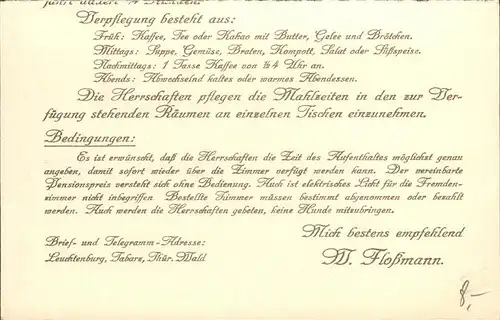 Verpflegung besteht aus:
Früh: Kaffee, Tee oder Kakao mit Butter, Gelee und Brötchen.
Mittags: Suppe, Gemüse, Braten, Kompott, Salat oder Süßspeise.
Nachmittags: 1 Tasse Kaffee von ½4 Uhr an.
Abends: Abwechselnd kaltes oder warmes Abendessen.
Die Herrschaften pflegen die Mahlzeiten in den zur Ver-
fügung stehenden Räumen an einzelnen Tischen einzunehmen.
Bedingungen:
Es ist erwünscht, daß die Herrschaften die Zeit des Aufenthaltes möglichst genau
angeben, damit sofort wieder über die Zimmer verfügt werden kann. Der vereinbarte
Pensionspreis versteht sich ohne Bedienung. Auch ist elektrisches Licht für die Fremden-
zimmer nicht inbegriffen. Bestellte Zimmer müssen bestimmt abgenommen oder bezahlt
werden. Auch werden die Herrschaften gebeten, keine Hunde mitzubringen.
Mich bestens empfehlend
W. Floßmann.
Brief- und Telegramm-Adresse:
Leuchtenburg, Tabarz, Thür. Wald
8,-